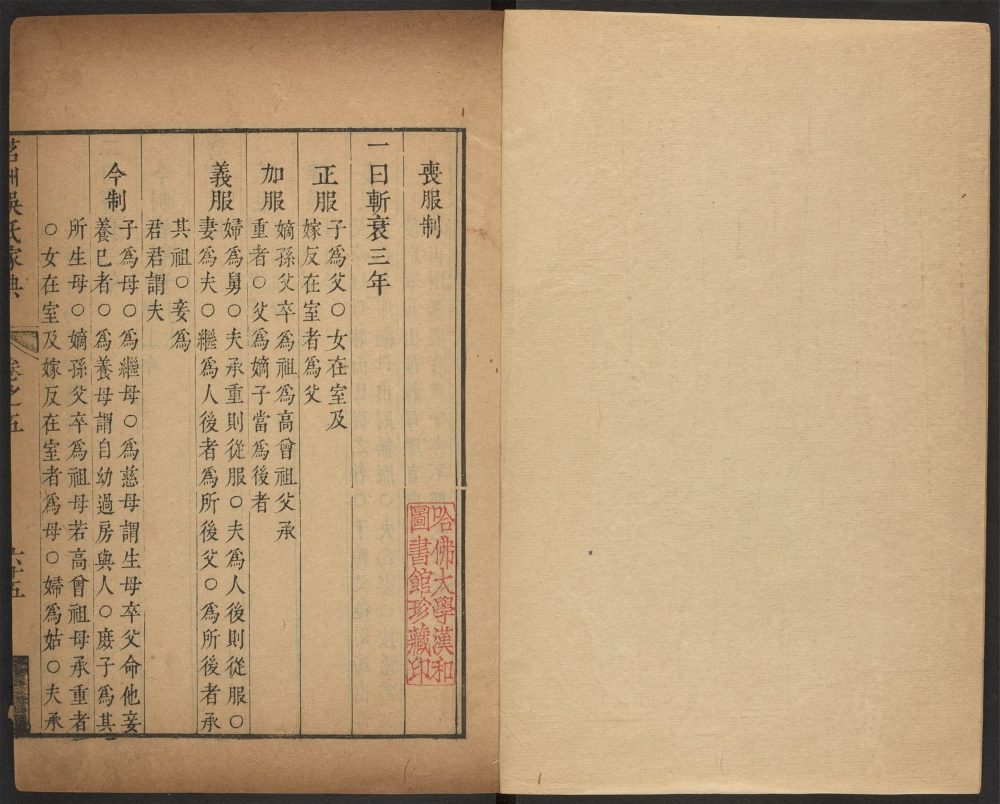 喪服制
一曰斬衰三年
正服
子爲父○女在室及
嫁反在室者爲父
加服
嫡孫父卒爲祖爲高曾祖父承
重者○父爲嫡子當爲後者
義服
婦爲舅○夫承重則從服○夫爲人後則從服○
妻爲夫○繼爲人後者爲所後父○爲所後者承
其祖○妾爲
君君謂夫
今制
子爲母○爲繼母○爲慈母謂生母卒父命他妾
養巳者○爲養母謂自幼過房與人○庶子爲其
所生母○嫡孫父卒爲祖母若高曾祖母承重者
○女在室及嫁反在室者爲母○婦爲姑○夫承
茗洲吳氏家典
卷之五
六十五
哈佛大學漢和
圖書館珍藏印